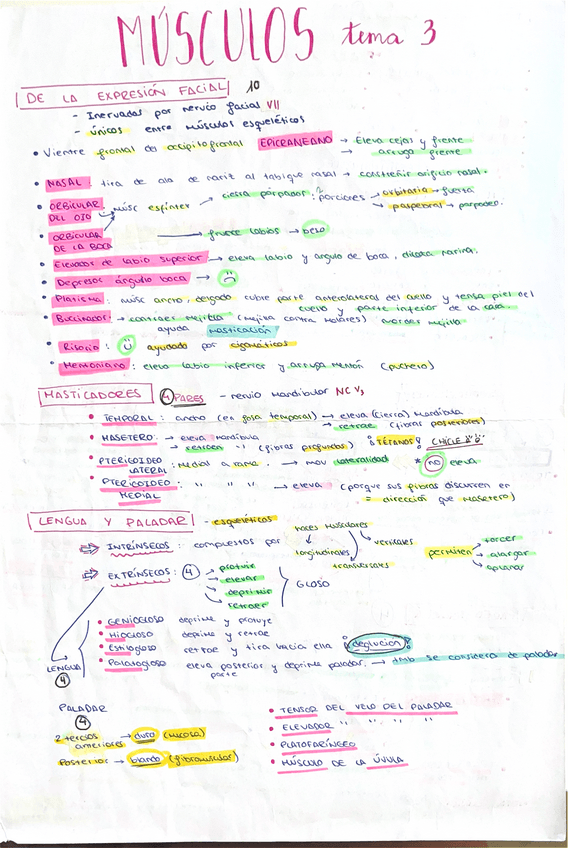 MÚSCULOS tema 3
DE LA EXPRESIÓN FACIAL 10
- Inervados por nervio facial VII
- únicos entre músculos esqueléticos
• Vientre frontal de occipitofrontal EPICRANEANO → Eleva cejas y frente
→ arruga frente
• NASAL: tira de ala de nariz al tabique nasal → constreñir orificio nasal.
• ORBICULAR DEL OJO músc esfínter → cierra párpador. 2 porciones → orbitaria → fuerza
→ palpebral → parpadeo.
• ORBICULAR DE LA BOCA → frunce labios → beso
• Elevador de labio superior → eleva labio y angulo de boca, dilata narina.
• Depresor ángulo boca → ☹
• Platisma: músc ancho, delgado cubre parte anterolateral del cuello y tensa piel del
cuello y parte inferior de la cara.
• Buccinador → contraer mejilla (mejilla contra molares) morder mejilla
ayuda masticación
• Risorio: ☺ ayudado por cigomáticos
• Mentoniano: eleva labio inferior y arruga mentón (puchero)
MASTICADORES 4 PARES - nervio mandibular NC V₃
• TEMPORAL: ancho (en fosa temporal) → eleva (cierra) mandíbula
→ retrae (fibras posteriores)
• MASETERO: → eleva mandíbula
→ retraen " (fibras profundas) ¡TÉTANOS! (CHICLE)
• PTERIGOIDEO LATERAL: medial a rama. → mov lateralidad * no eleva
• PTERIGOIDEO MEDIAL " " " → eleva (porque sus fibras discurren en
= dirección que masetero)
LENGUA Y PALADAR - esqueléticos
⇒ INTRÍNSECOS: compuestos por haces musculares
longitudinales verticales
transversales
permiten → torcer
→ alargar
→ aplanar
⇒ EXTRÍNSECOS: 4 → protruir
→ elevar
→ deprimir
→ retraer
GLOSO
LENGUA 4
• GENIOGLOSO deprime y protuye
• HIOGLOSO deprime y retrae
• Estilogloso retrae y tira hacia ella ¡deglución!
• Palatogloso eleva posterior y deprime paladar. → tmb se considera de paladar
parte
PALADAR
4
2 tercios anteriores → duro (mucosa)
Posterior → blando (fibromuscular)
• TENSOR DEL VELO DEL PALADAR
• ELEVADOR " " " "
• PLATOFARÍNGEO
• MÚSCULO DE LA ÚVULA